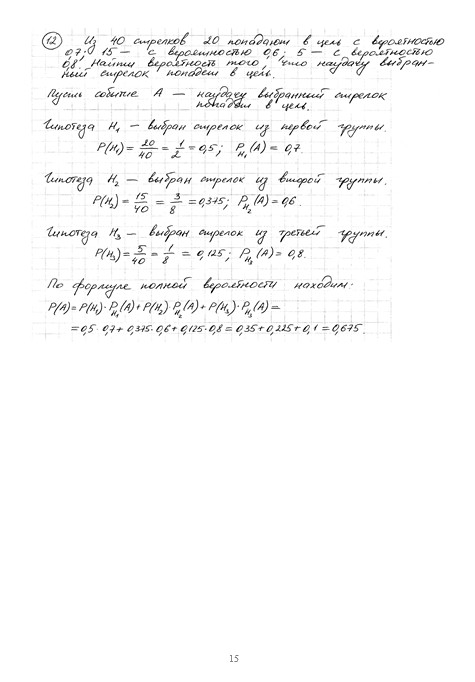 12 Из 40 стрелков 20 попадают в цель с вероятностью
0,7; 15 — с вероятностью 0,6; 5 — с вероятностью
0,8. Найти вероятность того, что наудачу выбран-
ный стрелок попадет в цель.
Пусть событие A — наудачу выбранный стрелок
попадет в цель.
Гипотеза H₁ — выбран стрелок из первой группы.
P(H₁) = 20/40 = 1/2 = 0,5; P_H₁(A) = 0,7.
Гипотеза H₂ — выбран стрелок из второй группы.
P(H₂) = 15/40 = 3/8 = 0,375; P_H₂(A) = 0,6.
Гипотеза H₃ — выбран стрелок из третьей группы.
P(H₃) = 5/40 = 1/8 = 0,125; P_H₃(A) = 0,8.
По формуле полной вероятности находим:
P(A) = P(H₁)·P_H₁(A) + P(H₂)·P_H₂(A) + P(H₃)·P_H₃(A) =
= 0,5·0,7 + 0,375·0,6 + 0,125·0,8 = 0,35 + 0,225 + 0,1 = 0,675.
15